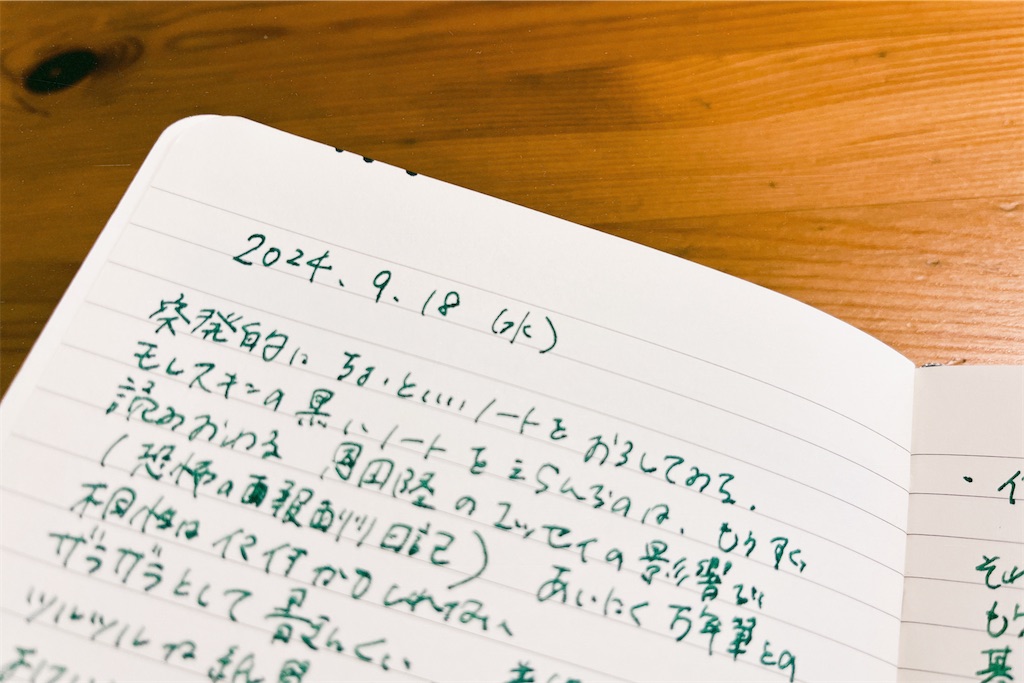 2024. 9. 18 (水)
突発的に ちょっといいノートを おろしてみる。
モレスキンの黒いノートを えらんだのは、もうすぐ
読みおわる 恩田陸のエッセイの影響で
(恐怖の報酬日記) あいにく 万年筆との
相性は イマイチかもしれない
ザラザラとして 書きにくい
ツルツルな紙
・イ
もう